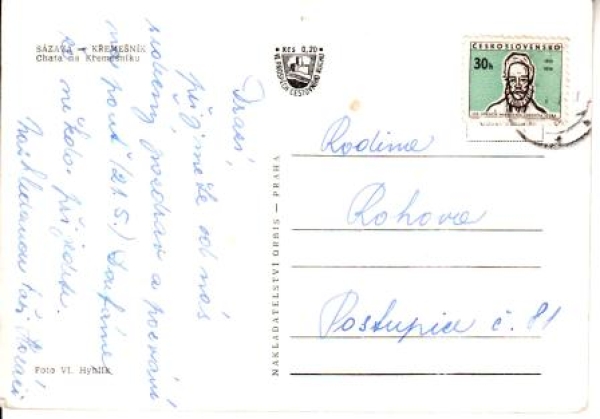 SÁZAVA — KŘEMEŠNÍK
Chata na Křemešníku
Kčs 0,20
VE PROSPĚCH CESTOVNÍHO RUCHU
ČESKOSLOVENSKO
30h
Drazí,
přijměte od nás
srdečný pozdrav a pozvání
na pouť (21.5.) Doufáme
že někdo přijedete.
Rodina
Rohova
Postupice č. 81
NAKLADATELSTVÍ ORBIS — PRAHA
Foto Vl. Hyhlík